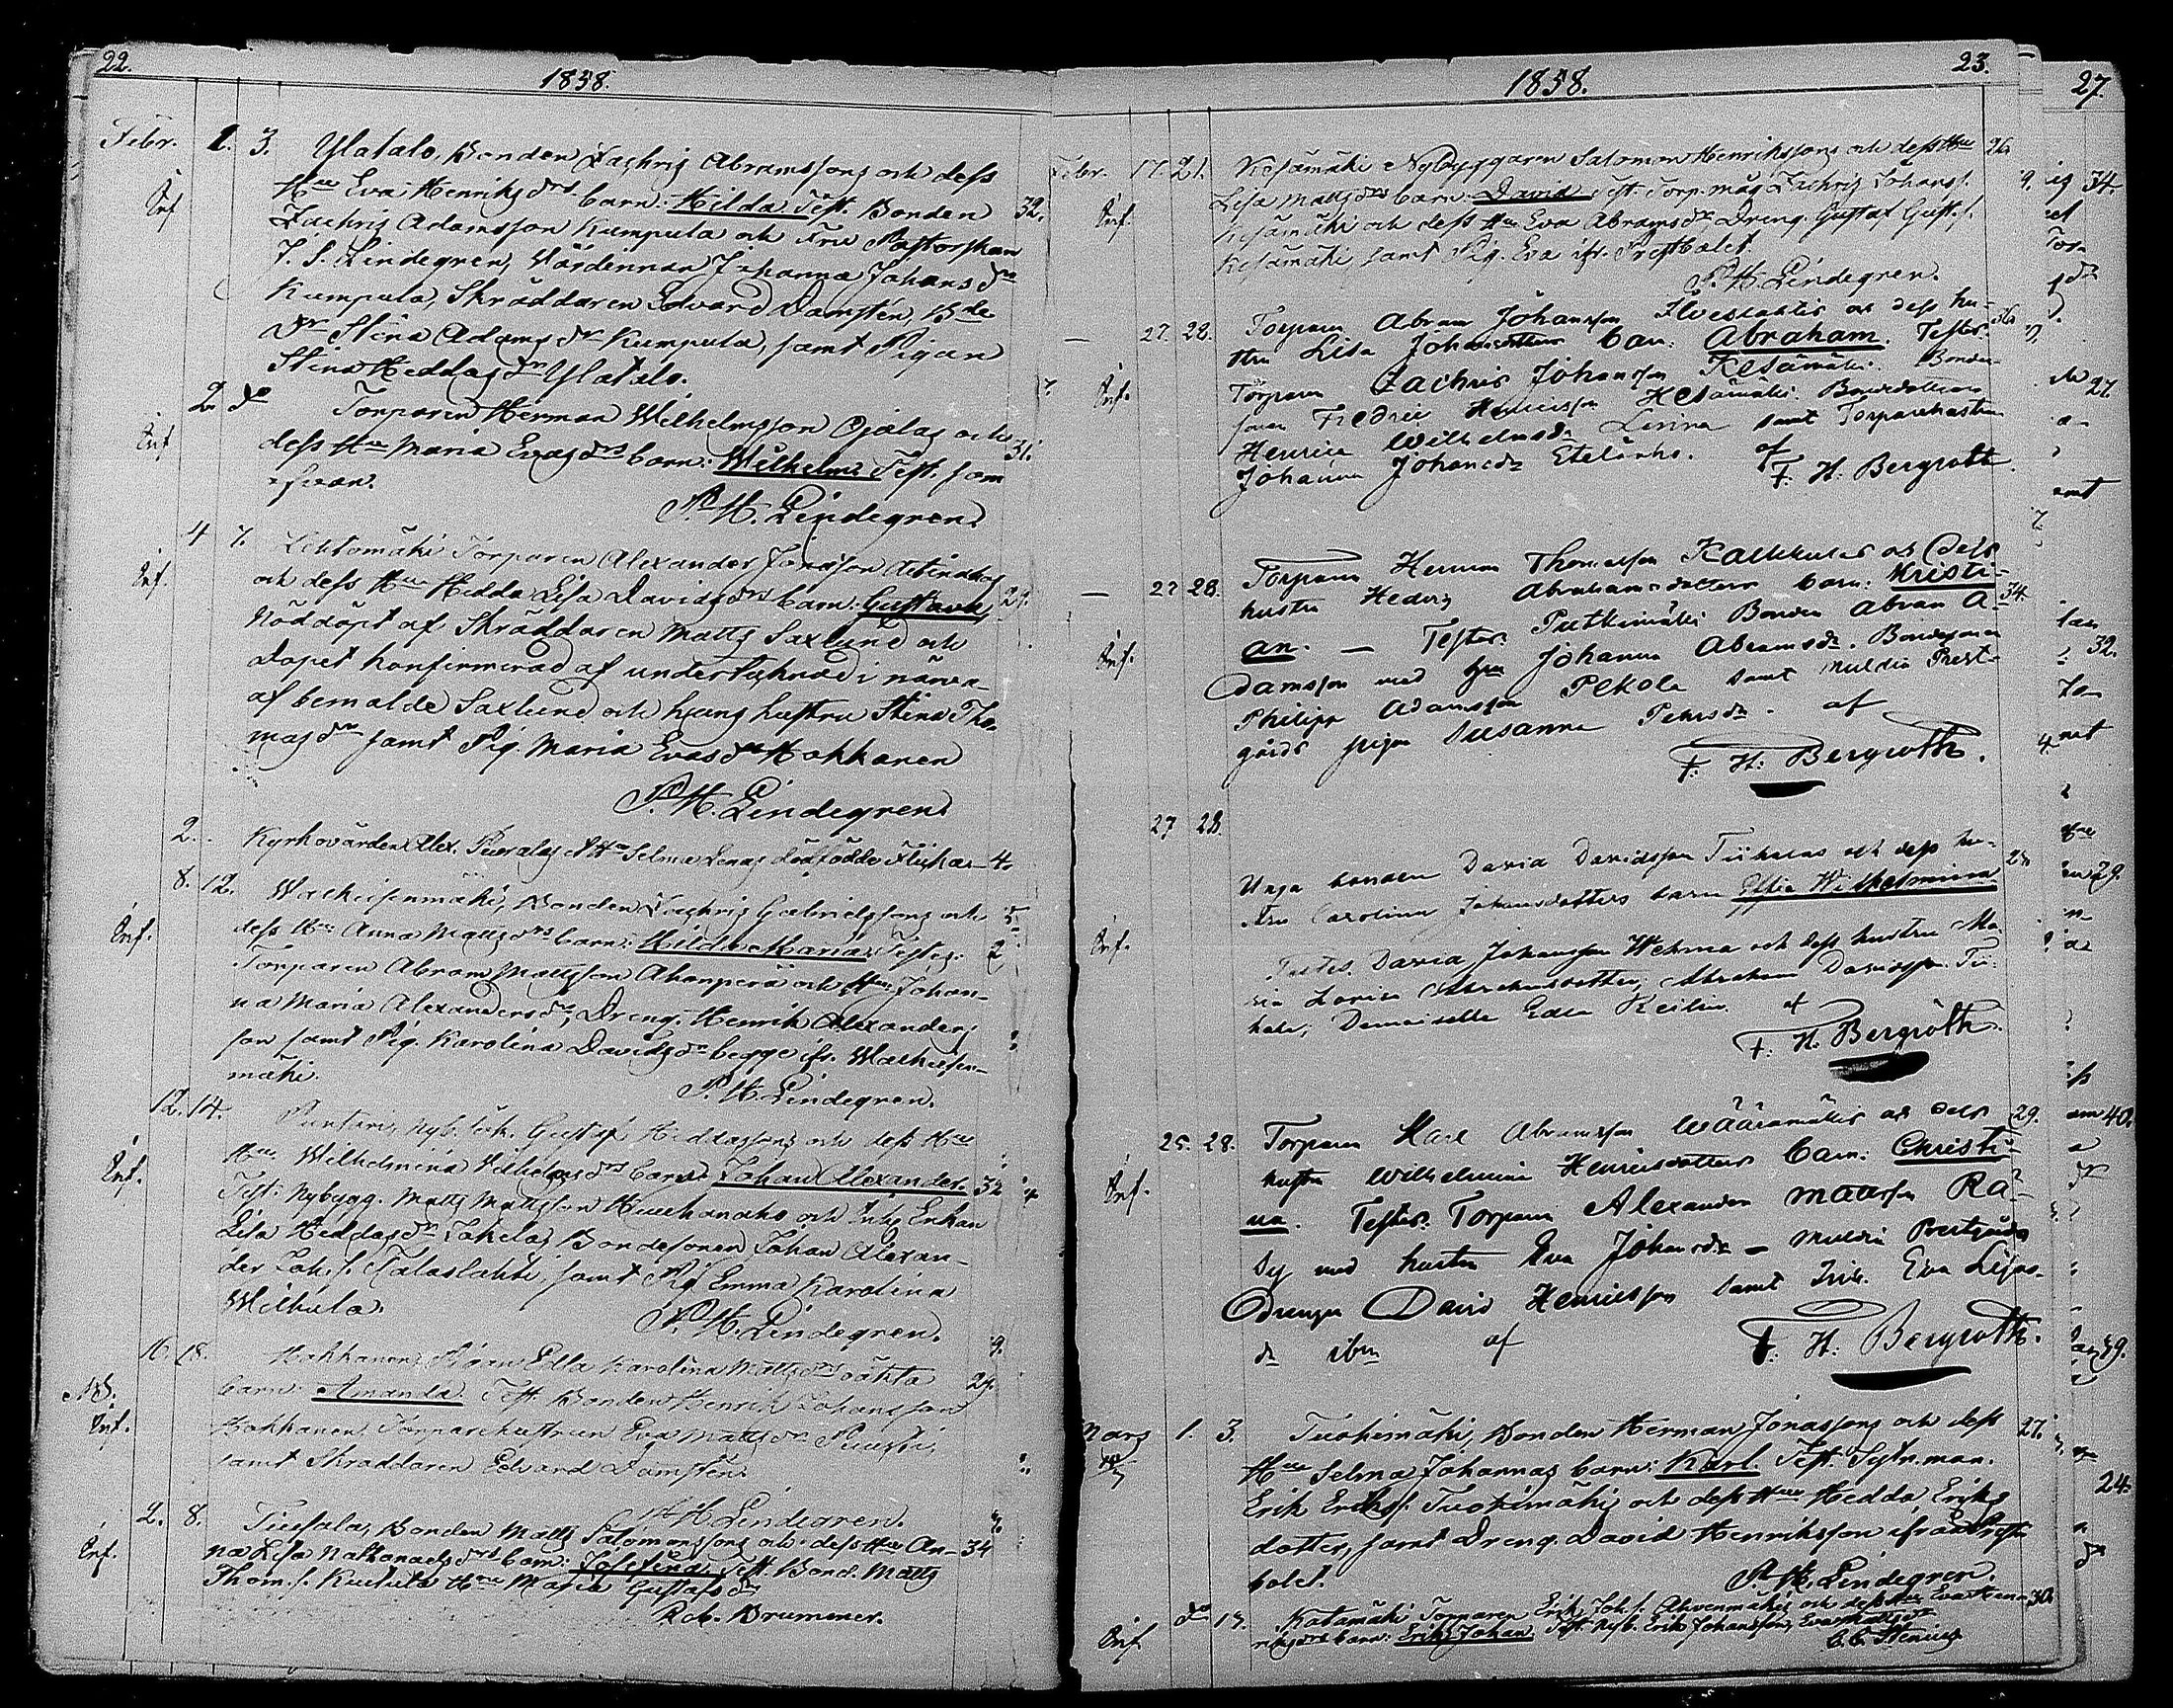 22.
1858.
Febr. 1. 3. Ylatalo, Bonden Zachris Abramssons och dess
Inf Hu Eva Henriksdrs barn: Hilda. Test. Bonden 32.
Zachris Adamsson Kumpula och Fru Pastorskan
J. S. Lindegren, Wärdinnan Johanna Johansdr
Kumpula, Skräddaren Edvard Damstén, Bde
Dr Stina Adamsdr Kumpula, samt Pigan
Stina Heddasdr Ylatalo.
2. do Torparen Herman Wilhelmsson Ojalas och
Inf dess Hu Maria Evasdrs barn: Wilhelm. Test. som 31.
ofvan.
P. H. Lindegren.
4 7. Lehtomäki Torparen Alexander
Inf. och dess Hu Hedda Lisa Davidsdrs barn: Gustava, 29.
Nöddöpt af Skräddaren Matts Saxlund och
dopet konfirmerad af undertecknad i närva-
af bemälde Saxlund och hans hustru Stina Tho-
masdr samt Pig. Maria Evasdr Hakkanen
P. H. Lindegren.
2. Kyrkovärden Alex. Hu Selma Lenas dödfödde flicka 4.
8. 12. Bonden Zachris Gabrielssons och
Inf. dess Hu Anna Mattsdrs barn: Hilda Maria. Testes:
Torparen Abram Mattsson Ahonperä och Hu Johan-
na Maria Alexandersdr, Dreng. Henrik Alexanders-
son samt Pig. Karolina Davidsdr begge ifr.
mäki.
P. H. Lindegren.
12. 14. Gustaf Heddassons och dess Hu
Inf. Hu Wilhelmina barn: Johan Alexander. 32
Test: Nybygg. Matts Mattsson och Enk
Lisa Heddasdr Bondesonen Johan Alexan-
der Joh. s. Talaslahti, samt Pig Emma Karolina
Wilkula.
P. H. Lindegren.
16. 18. Hakkanen, Pigan Edla Karolina Mattsdrs oäkta
NB. barn: Amanda. Test. Bonden Henrik Johansson 29.
Inf. Hakkanen, Torparehustrun Eva Mattsdr
samt Skräddaren Edvard Damstén.
P. H. Lindegren.
2. 8. Bonden Matts Salomonssons och dess Hu An- 34
Inf. na Lisa Nathanaelsdrs barn: Josefina. Test. Bond. Matts
Thom. s. Hu Maria Gustafsdr
Rob. Brummer.
23.
1858.
Febr. 17. 21. Kesämäki Nybyggaren Salomon Henrikssons och dess Hu 26.
Inf. Lisa Mattsdrs barn: David. Test. Torp. måg Zachris Johans s.
Kesämäki och dess Hu Eva Abramsdr, Dreng. Gustaf Gust. s.
Kesämäki, samt Pig. Eva ifr. Prestbolet.
P. H. Lindegren.
— 27. 28. Torparen Abram Johansson och dess hu- 36
stru Lisa Johansdotters barn: Abraham. Testes.
Inf. Torparen Zachris Johansson Kesämäki. Bonde-
sonen Fredric Henricsson Kesämäki. Bondedottren
Henrica Wilhelmsdr samt Torparehustrun
Johanna Johansdr Etelänho. af
F. H. Bergroth.
— 27 28. Torparen Herman Thomasson och dess
hustru Hedvig Abrahamsdotters barn: Kristi- 34.
Inf. an. — Testes. Putkimäki Bonden Abram A-
damsson med Johanna Abramsdr. Bondesonen
Philipp Adamsson Pekola samt Prest-
gårds pigan Susanna Petersdr. af
F. H. Bergroth.
27 28.
Unga bonden David Davidsson och dess hu-
stru Carolina Johansdotters barn Wilhelmina
Inf. Testes. David Johansson Wehmä och dess hustru Ma-
ria Lovisa Abrahamsdotter, Abraham Davidsson
Demoiselle Edla af
F. H. Bergroth.
25. 28. Torparen Karl Abramsson Wääramäkis och dess 29.
Inf. hustru Wilhelmina Henricsdotters barn: Christi-
na. Testes. Torparen Alexander Matsson
med hustru Eva Johansdr —
Drengen David Henricsson samt Eva
dr ibm af
F. H. Bergroth.
Mars 1. 3. Tuohimäki, Bonden Herman Jonassons och dess 27.
Hu Selma Johannas barn: Karl. Test. Sytn.man.
Erik Eriks s. Tuohimäki och dess Hu Hedda Eriks
dotter, samt Dreng. David Henriksson ifrån Prest-
bolet.
P. H. Lindegren.
do 17. Katamäki Torparen Erik Joh. s. Ahvenmäkis och dess Hu Eva Hen- 30.
Inf. riksdrs barn: Erik Johan. Test. Nyb. Erik Johansson, Eva Mattsdr
C. C. Stenius
27.
34.
27.
32.
29.
40.
39.
24.